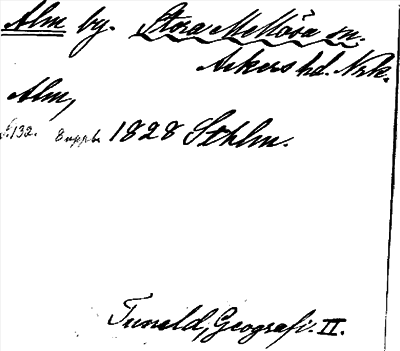 Alm by. Stora Mellösa sn.
Askers hd. Nrk.
Alm,
s. 132. 8 uppl. 1828 Sthlm.
Tuneld, Geografi. II.